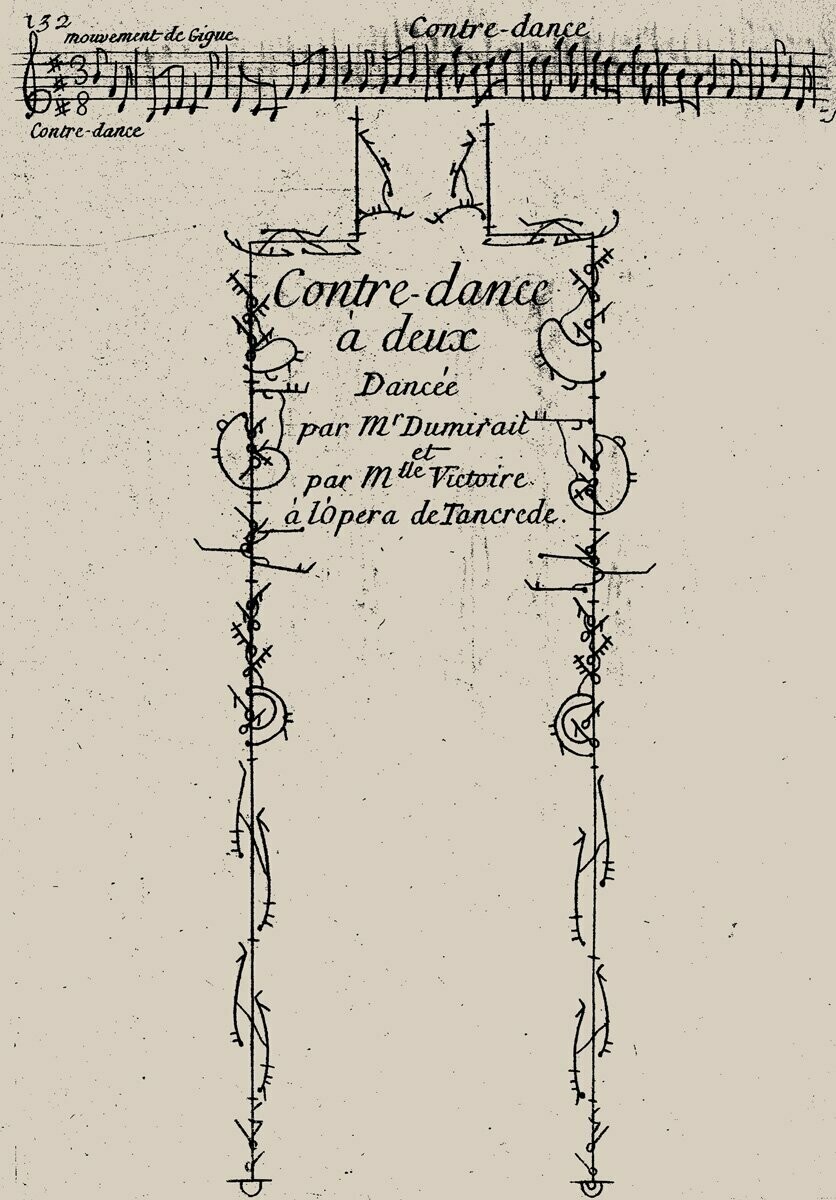 132
mouvement de Gigue
Contre-dance
3
8
Contre-dance
Contre-dance
à deux
Dancée
par Mr Dumirail
et
par Mlle Victoire
à l'Opera de Tancrede.